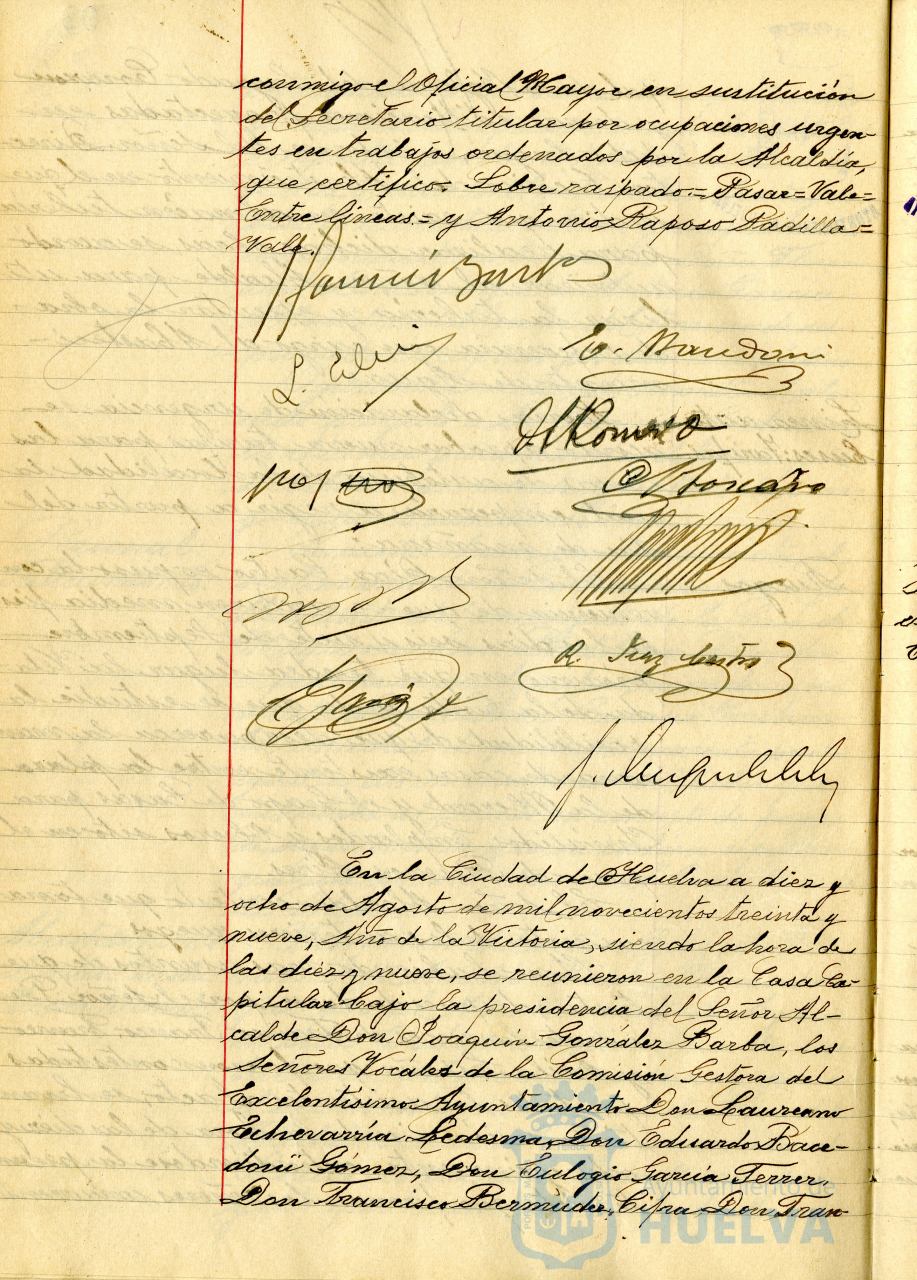 conmigo el Oficial Mayor en sustitución
del Secretario titular por ocupaciones urgen-
tes en trabajos ordenados por la Alcaldía,
que certifico. Sobre raspado.=Pasar=Vale=
Entre líneas.=y Antonio Raposo Padilla=
Vale.
En la Ciudad de Huelva a diez y
ocho de Agosto de mil novecientos treinta y
nueve, Año de la Victoria, siendo la hora de
las diez y nueve, se reunieron en la Casa Ca-
pitular bajo la presidencia del Señor Al-
calde Don Joaquín González Barba, los
Señores Vocales de la Comisión Gestora del
Excelentísimo Ayuntamiento Don Laureano
Echevarría Ledesma, Don Eduardo Bace-
doni Gómez, Don Eulogio García Ferrer,
Don Francisco Bermudez Cifra Don Fran-
Ayuntamiento de
HUELVA